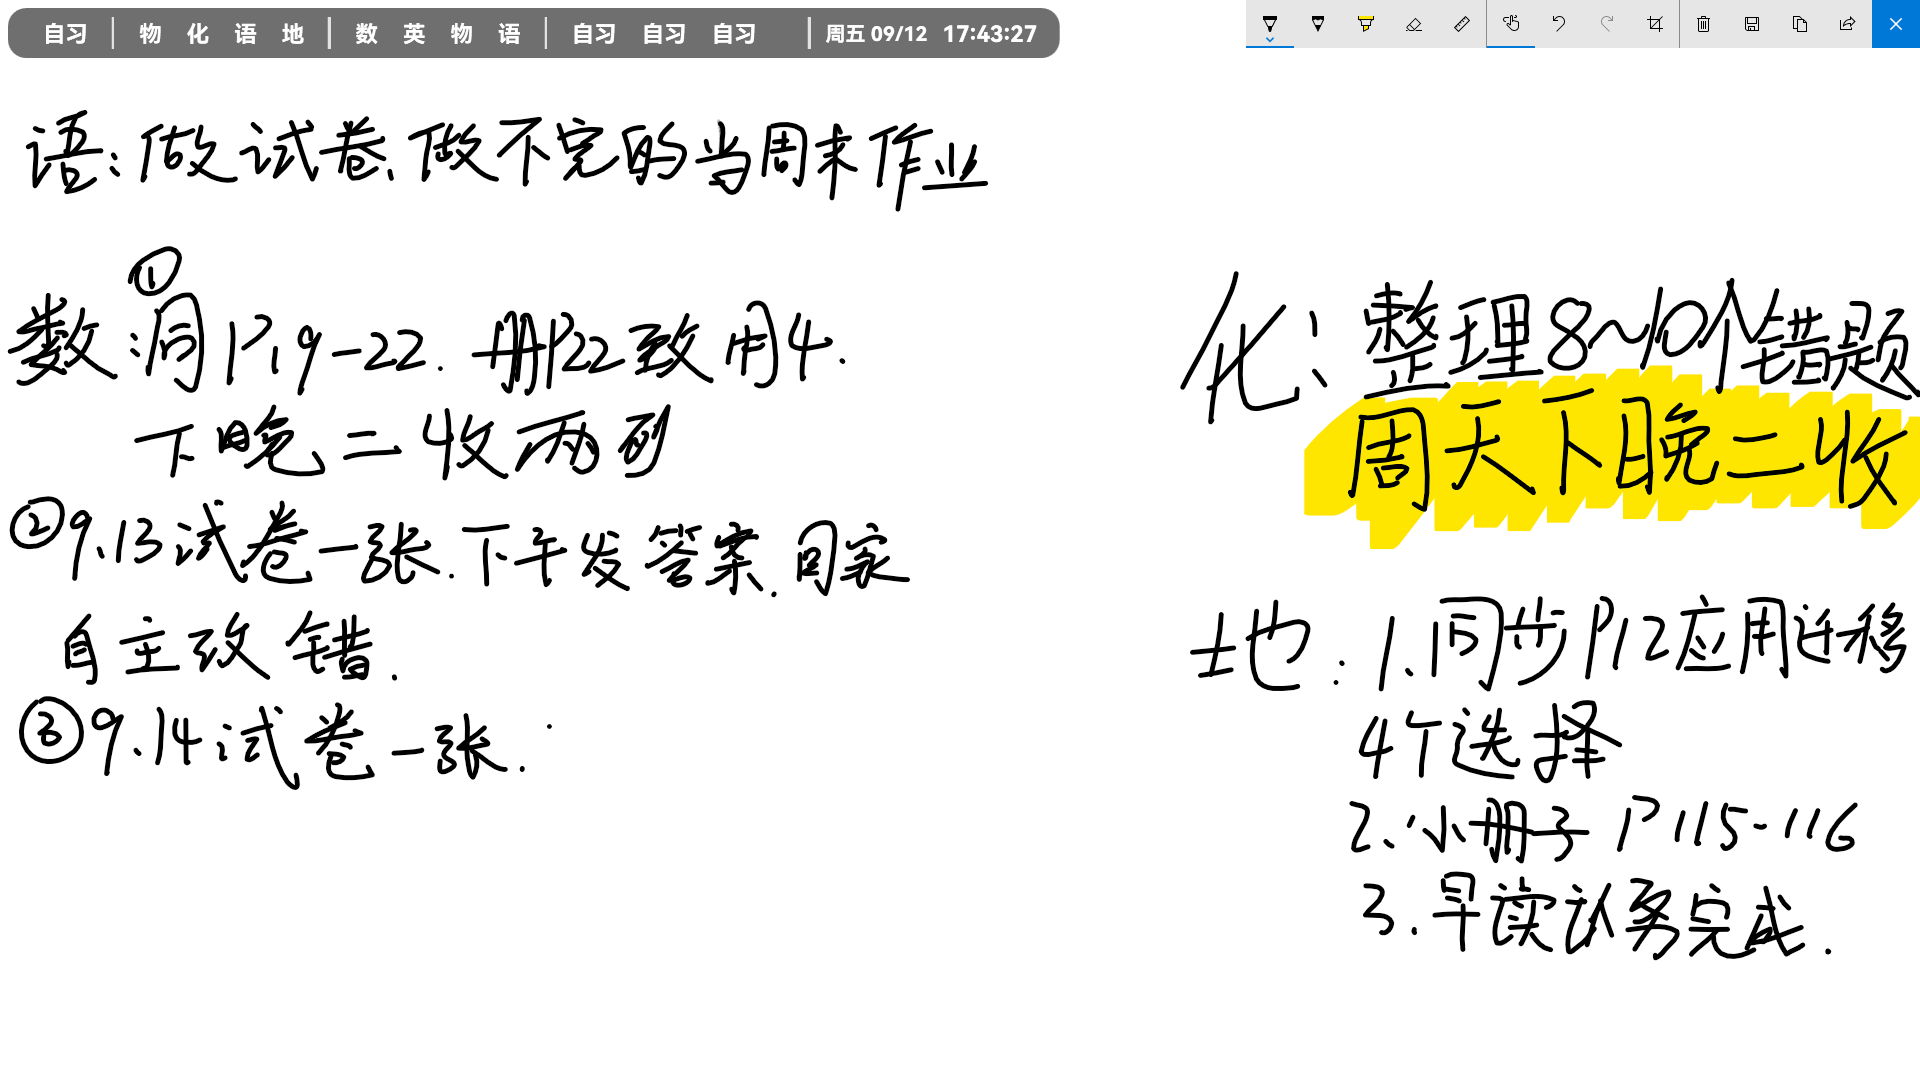 自习 | 物 化 语 地 | 数 英 物 语 | 自习 自习 自习 | 周五 09/12 17:43:27
语:做试卷、做不完的当周末作业
数:①同P19-22. 册P22致用4.
下晚二收两到
②9.13试卷一张.下午发答案.回家
自主改错.
③9.14试卷一张.
化:整理8~10个错题
周天下晚二收
地:1.同步P12应用迁移
4个选择
2.小册子P115-116
3.早读认务完成.